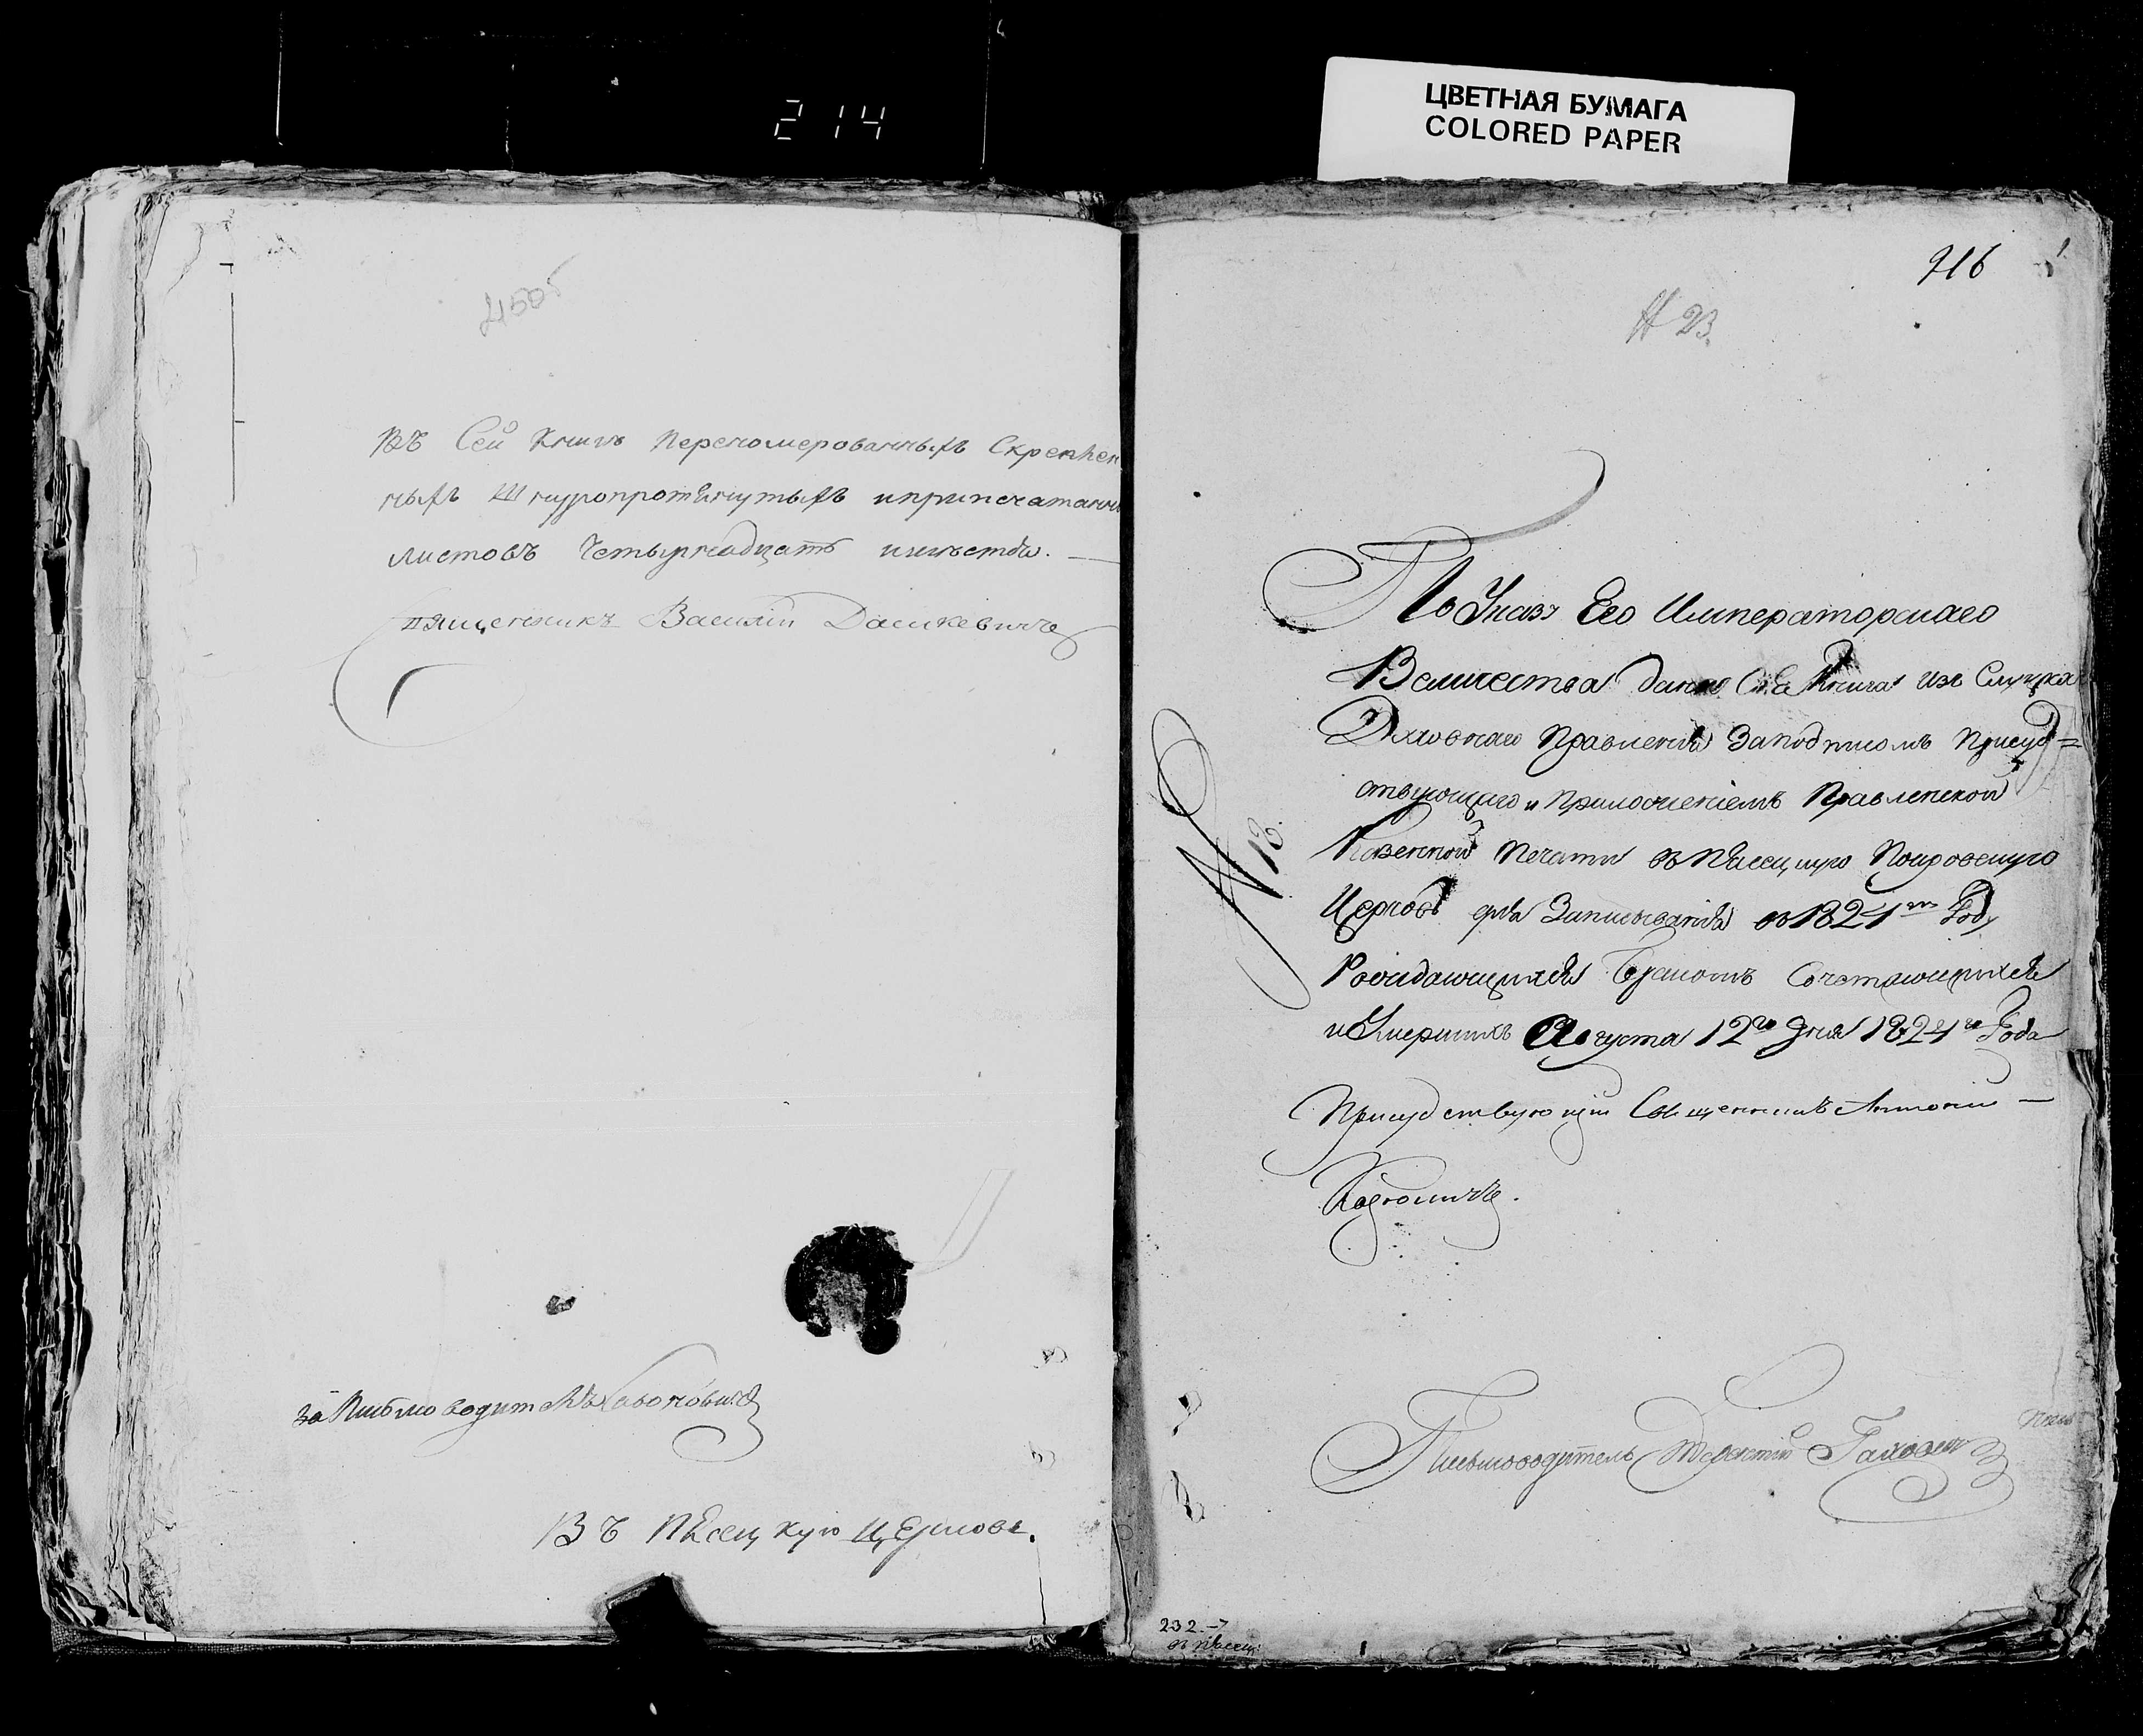 214
ЦВЕТНАЯ БУМАГА
COLORED PAPER
Въ Сей Книгѣ переномерованныхъ Скрепхен
ныхъ Шнуропротянутыхъ иприпечатанны
листовъ Четырнадцать ишестдв.
Священникъ Василій Дашкевичъ
за Писмоводителъ
Въ Пѣсецкую Церковь.
216
№ 23.
По Указу Его Императорскаго
Величества дана Сія Книга изъ Слуцкаго
Духовнаго Правленія Заподписомъ Присуд=
ствующаго и Приложеніемъ Правленской
Казенной Печати въ Пѣсецкую Покровскую
Церковь для Записыванія въ 1824м Году
Рождающихся Бракомъ Сочетающихся
и Умершихъ Августа 12го дня 1824го Года
№ 18.
Присудствующій Священникъ Антоній
Письмоводитель
232.
въ Пѣсец: